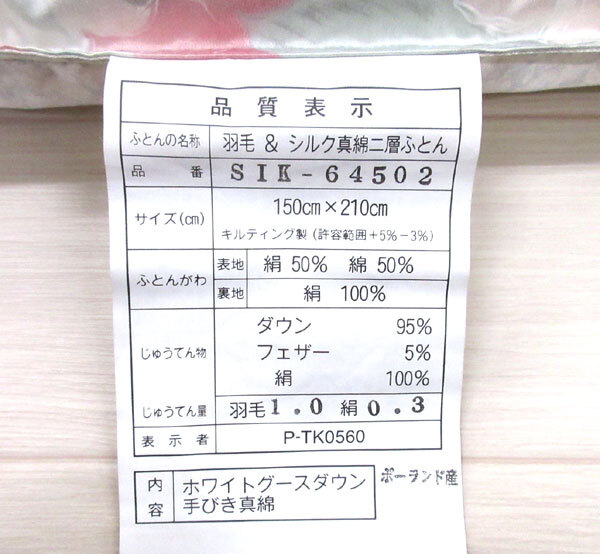 品質表示
ふとんの名称 羽毛 & シルク真綿二層ふとん
品番 SIK-64502
サイズ(cm) 150cm×210cm
キルティング製(許容範囲+5%-3%)
ふとんがわ 表地 絹 50% 綿 50%
裏地 絹 100%
じゅうてん物 ダウン 95%
フェザー 5%
絹 100%
じゅうてん量 羽毛1.0 絹0.3
表示者 P-TK0560
内容 ホワイトグースダウン ポーランド産
手びき真綿